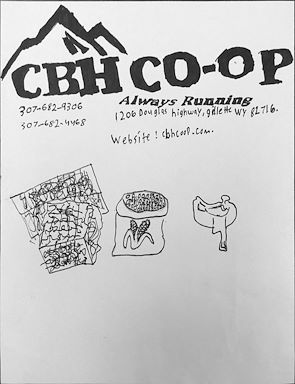 CBH CO-OP
Always Running
307-682-9306
1206 Douglas highway, gillette WY 82716.
307-682-4468
Website: cbhcoop.com.